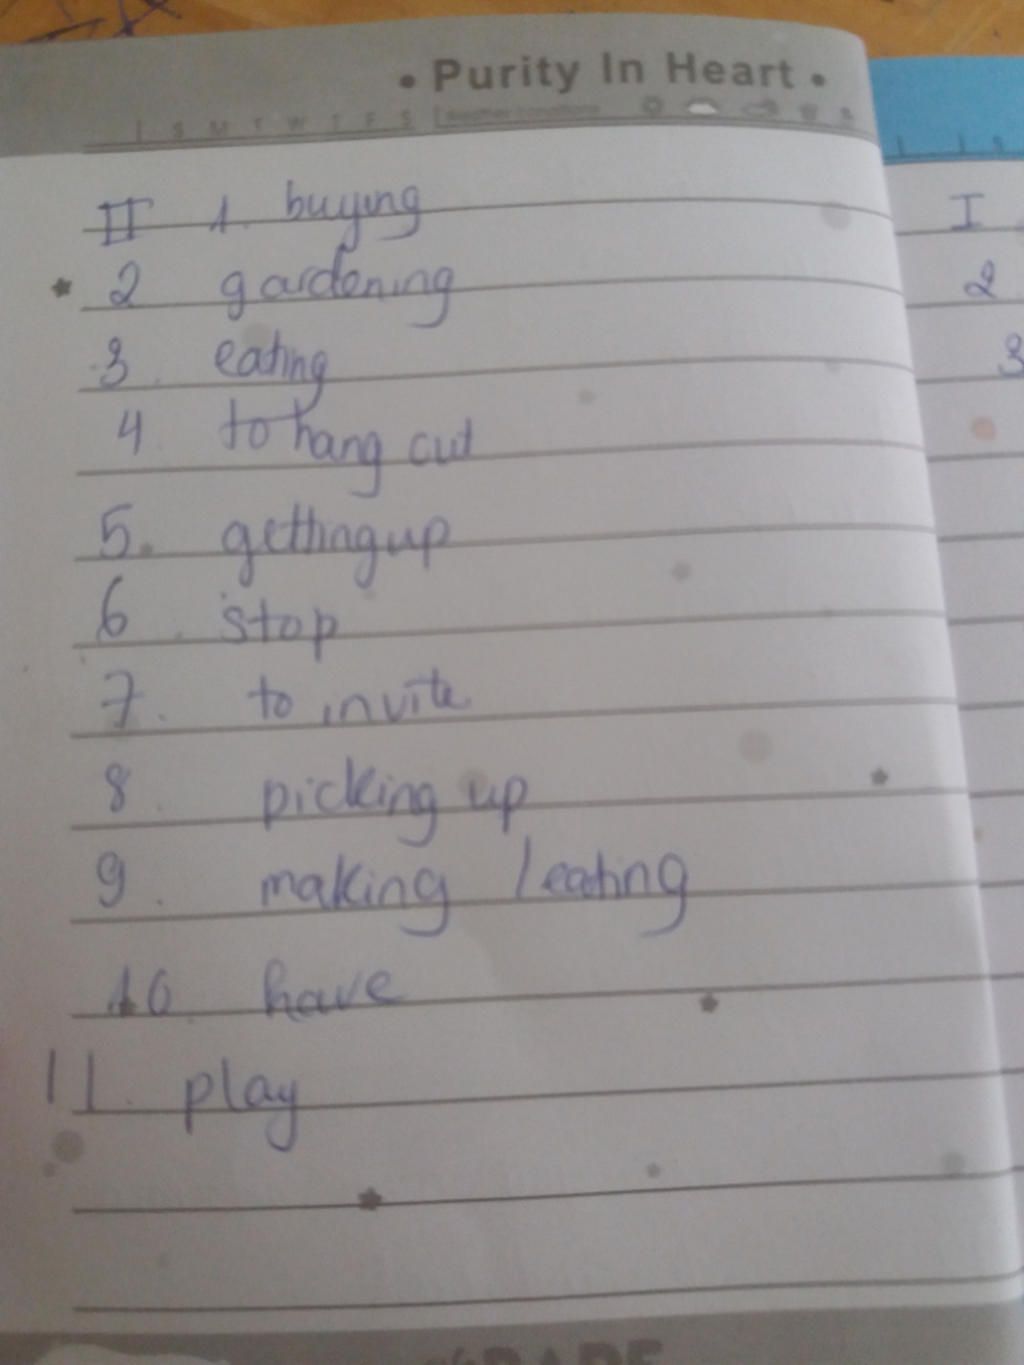 • Purity In Heart •
S M T W T F S
II 1. buying
2 gardening
3. eating
4. to hang out
5. getting up
6. stop
7. to invite
8. picking up
9. making / eating
10. have
11. play
I
2
3